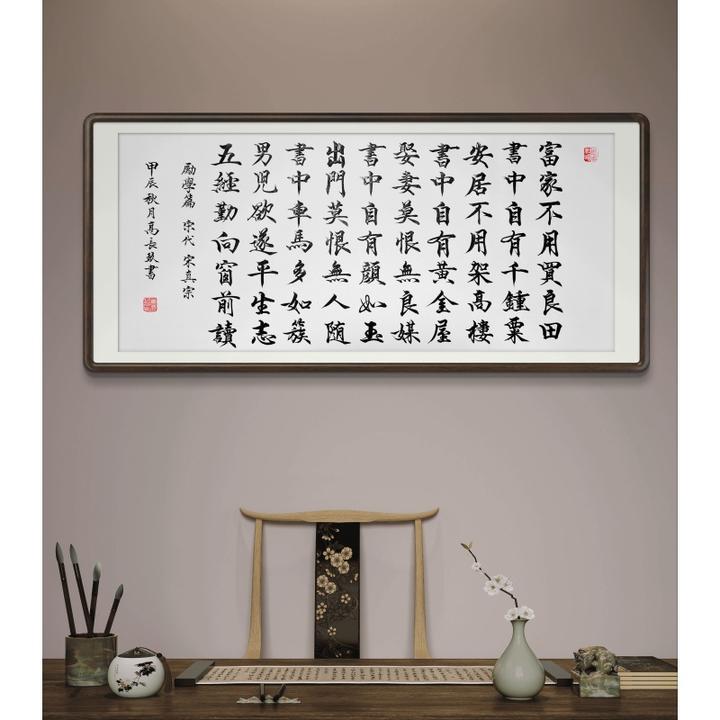 富家不用買良田
書中自有千鍾粟
安居不用架高樓
書中自有黃金屋
娶妻莫恨無良媒
書中自有顏如玉
出門莫恨無人随
書中車馬多如簇
男兒欲遂平生志
五經勤向窗前讀
勵學篇 宋代 宋真宗
甲辰秋月高長林書